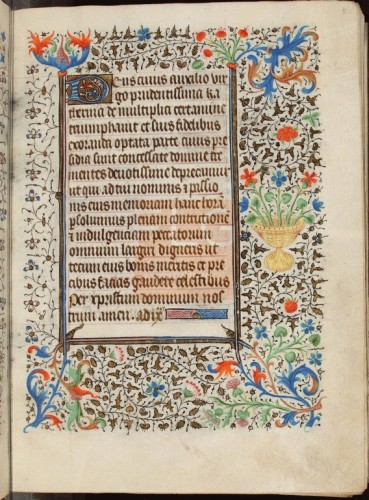 Deus cuius auxilio vir
go prudentissima ka
therina de multiplici certamine
triumphauit et suis fidelibus
exoranda optata parte cuius pre
sidia sunt concessa te domine
merites deuotissime deprecamur
ut qui ad tui nominis
eius memoriam hanc horam
psoluimus plenam contritionem
indulgenciam peccatorum
omnium largiri digneris ut
tecum eius bonis meritis et pre
cibus facias gaudere celestibus
Per xpristum dominum nos
trum amen. ad ix